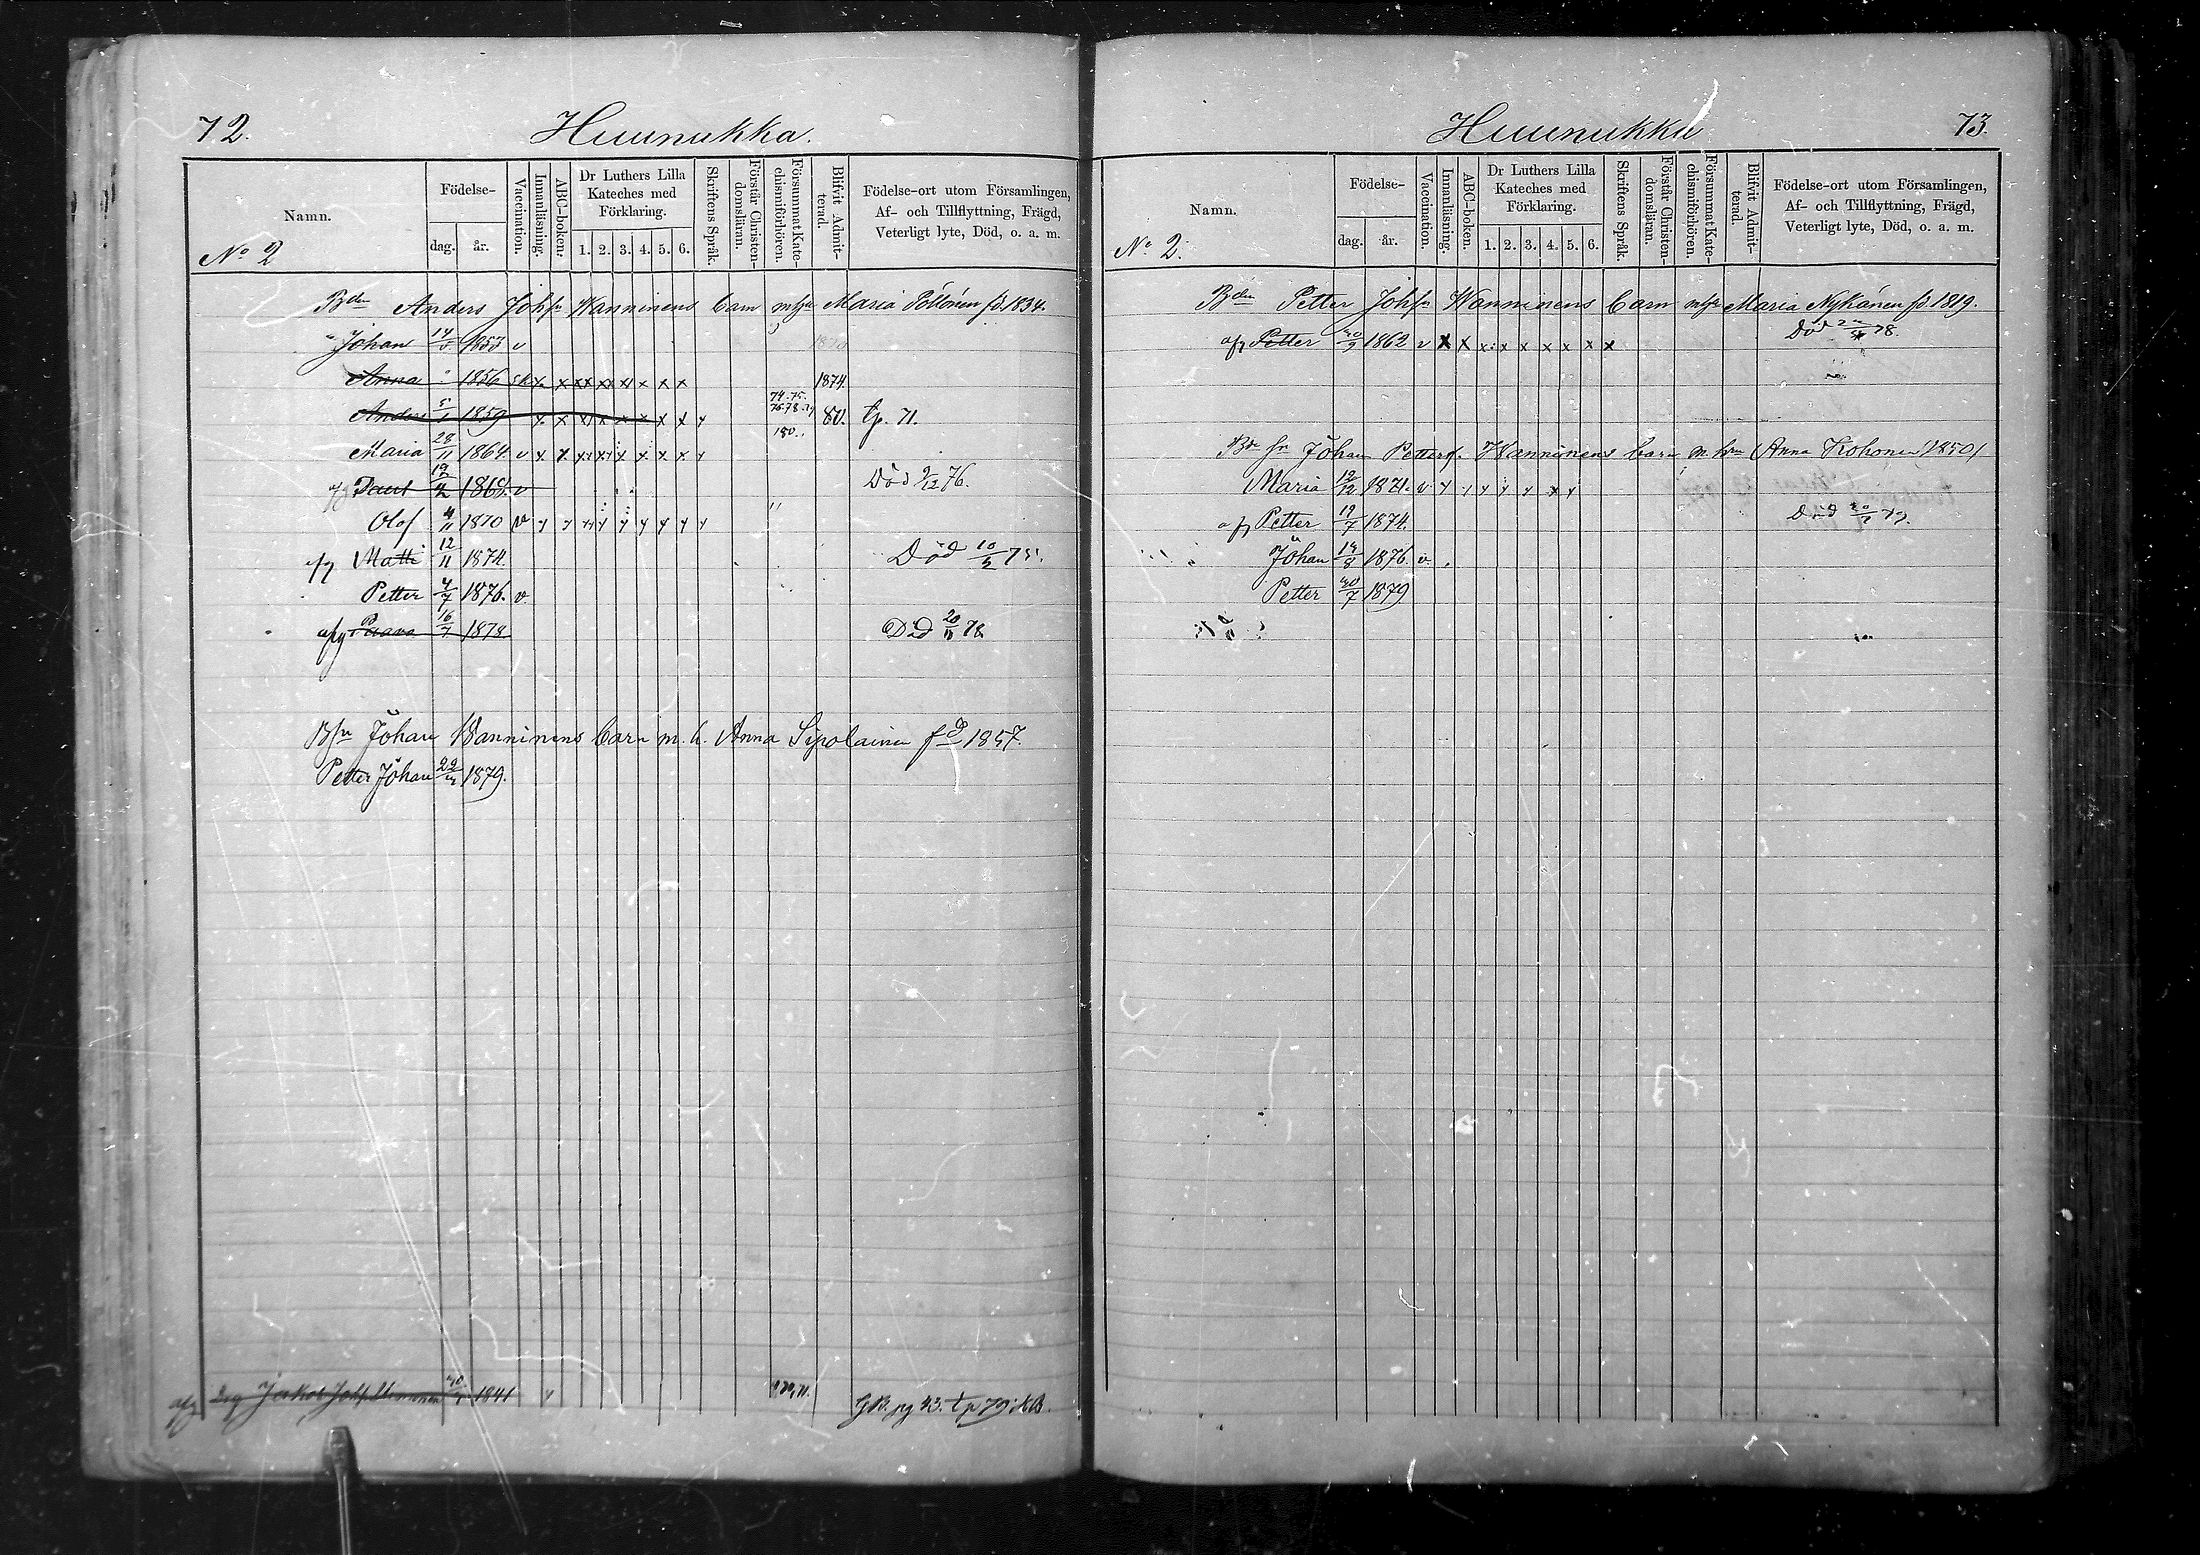 72.
Huunukka.
Namn.
Födelse-
dag.
år.
Vaccination.
Innanläsning.
ABC-boken.
Dr Luthers Lilla
Kateches med
Förklaring.
1. 2. 3. 4. 5. 6.
Skriftens Språk.
Förstår Christen-
domsläran.
Försummat Kate-
chismiförhören.
Blifvit Admit-
terad.
Födelse-ort utom Församlingen,
Af- och Tillflyttning, Frägd,
Veterligt lyte, Död, o. a. m.
No 2
Bden Anders Johs Wanninens barn m hu Maria Pöllönen fd 1834.
Johan 14/5 1853 v
Anna 1856 x x x x x x x x 1874.
74. 75.
Anders 5/1 1859 x x x x x x x x y 76. 78. 79 80. tp. 71.
Maria 28/11 1864. v x x x x x x x x y
Paul 19/2 1868. v Död 9/12 76.
Olof 4/11 1870 v y y y y y y y y y
afg Matti 12/11 1874. Död 10/5 75.
Petter 4/7 1876. v.
afg Paavo 16/7 1878 Död 20/11 78
Johan Wanninens barn m. h. Anna Sipolainen fd 1857.
Petter Johan 1879.
afg Jakob Johs 1841 GB. pg 43. tp 79: KB.
73.
Huunukka
Namn.
Födelse-
dag.
år.
Vaccination.
Innanläsning.
ABC-boken.
Dr Luthers Lilla
Kateches med
Förklaring.
1. 2. 3. 4. 5. 6.
Skriftens Språk.
Förstår Christen-
domsläran.
Försummat Kate-
chismiförhören.
Blifvit Admit-
terad.
Födelse-ort utom Församlingen,
Af- och Tillflyttning, Frägd,
Veterligt lyte, Död, o. a. m.
No 2.
Bden Petter Johs Wanninens barn m hu Maria Nykänen fd 1819.
afg Petter 30/9 1862 v x x x x x x x x x Död 78.
Johan Petters. Wanninens barn m. hu (Anna Kohonen 1850)
Maria 12/12 1871. v y y y y y x y
afg Petter 19/7 1874. Död 79.
Johan 14/8 1876. v
Petter 30/7 1879